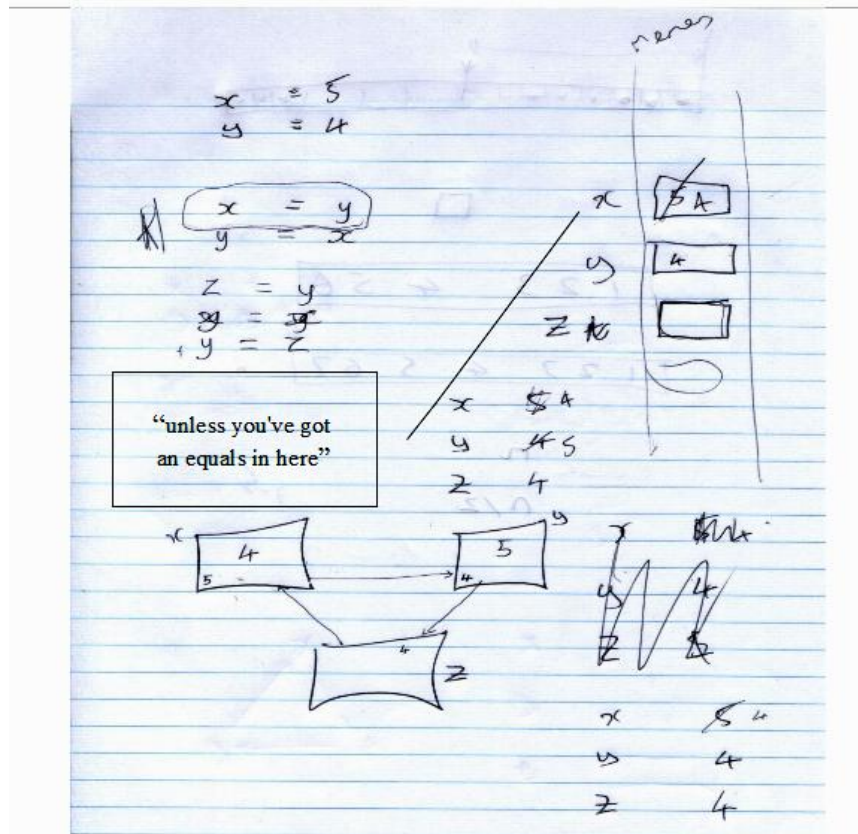 x = 5
y = 4
x = y
y = x
z = y
y = z
x 5 4
y 4
z
“unless you've got
an equals in here”
x 5 4
y 4 5
z 4
x 4 5
y 5 4
4 z
x 4
y 4
z 5
x 5 4
y 4
z 4